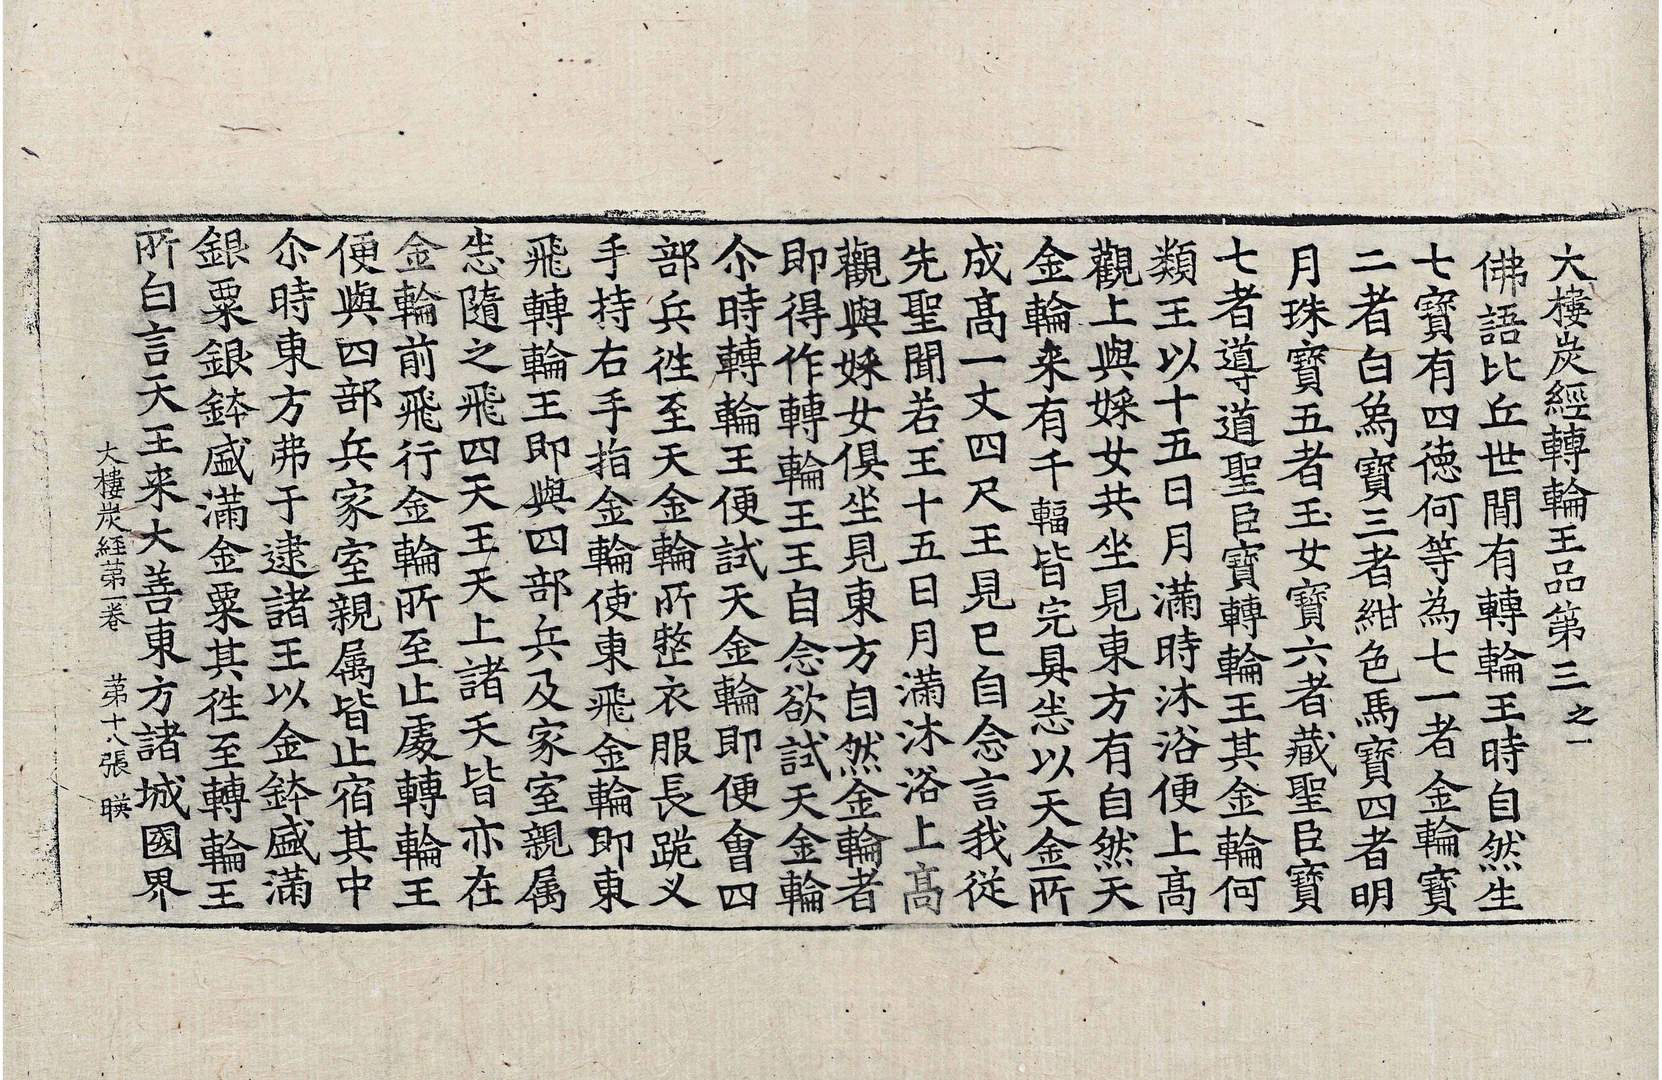 大樓炭經轉輪王品第三之一
佛語比丘世閒有轉輪王時自然生
七寶有四徳何等為七一者金輪寶
二者白𤉢寶三者紺色馬寶四者明
月珠寶五者玉女寶六者藏聖臣寶
七者導道聖臣寶轉輪王其金輪何
類王以十五日月滿時沐浴便上高
觀上與婇女共坐見東方有自然天
金輪来有千輻皆完具悉以天金所
成髙一丈四尺王見已自念言我従
先聖聞若王十五日月滿沐浴上髙
觀與婇女俱坐見東方自然金輪者
即得作轉輪王王自念欲試天金輪
尒時轉輪王便試天金輪即便會四
部兵徃至天金輪所整衣服長跪叉
手持右手指金輪使東飛金輪即東
飛轉輪王即與四部兵及家室親属
悉隨之飛四天王天上諸天皆亦在
金輪前飛行金輪所至止處轉輪王
便與四部兵家室親属皆止宿其中
尒時東方弗于逮諸王以金鉢盛滿
銀粟銀鉢盛滿金粟其徃至轉輪王
所白言天王来大善東方諸城國界
大樓炭経苐一卷 苐十八張 暎